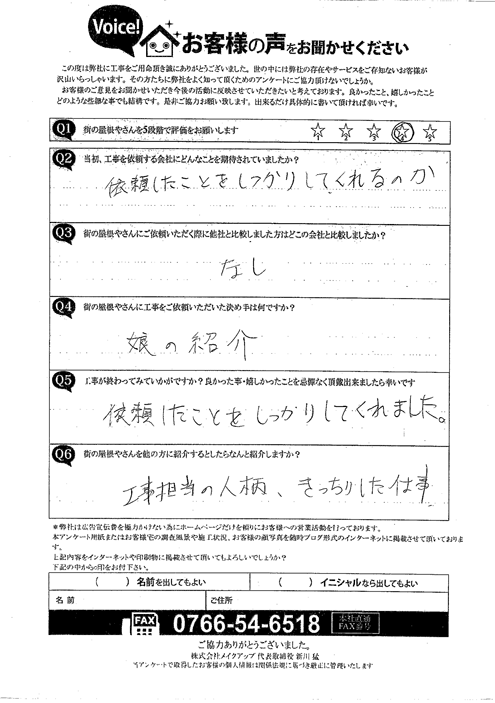 Voice!
お客様の声をお聞かせください
この度は弊社に工事をご用命頂き誠にありがとうございます。世の中には弊社の存在やサービスをご存知ないお客様が
沢山いらっしゃいます。その方たちに弊社をよく知って頂くためのアンケートにご協力頂けないでしょうか。
お客様のご意見をお聞かせいただき今後の活動に反映させていただきたいと考えております。良かったこと、嬉しかったこと
どのような些細な事でも結構です。是非ご協力お願い致します。出来るだけ具体的に書いて頂ければ幸いです。
Q1 街の屋根やさんを5段階で評価をお願いします
1 2 3 4 5
Q2 当初、工事を依頼する会社にどんなことを期待されていましたか?
依頼したことをしっかりしてくれるのか
Q3 街の屋根やさんにご依頼いただく際に他社と比較しました方はどこの会社と比較しましたか?
なし
Q4 街の屋根やさんに工事をご依頼いただいた決め手は何ですか?
娘の紹介
Q5 工事が終わってみていかがですか?良かった事・嬉しかったことを忌憚なく頂戴出来ましたら幸いです
依頼したことをしっかりしてくれました。
Q6 街の屋根やさんを他の方に紹介するとしたらなんと紹介しますか?
工事担当の人柄、きっちりした仕事
*弊社は広告宣伝費を極力かけない為にホームページだけを頼りにお客様への営業活動を行っております。
本アンケート用紙またはお客様宅の調査風景や施工状況、お客様の顔写真を随時ブログ形式のインターネットに掲載させて頂いております。
上記内容をインターネットや印刷物に掲載させて頂いてもよろしいでしょうか?
下記の中から○印をお付下さい。
( ) 名前を出してもよい ( ) イニシャルなら出してもよい
名前 ご住所
FAX 0766-54-6518 本社直通 FAX番号
ご協力ありがとうございました。
株式会社メイクアップ 代表取締役 新川 猛
当アンケートで取得したお客様の個人情報は関係法規に基づき厳正に管理いたします